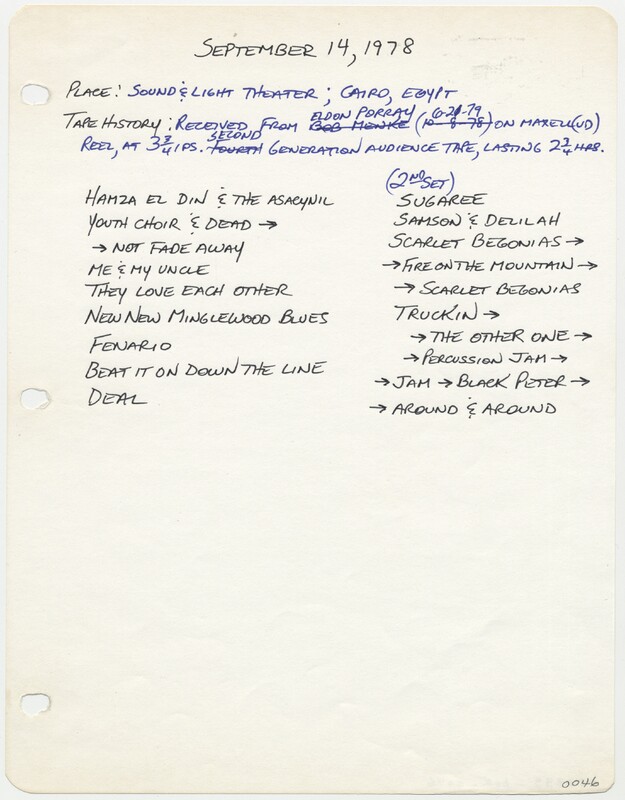 SEPTEMBER 14, 1978
PLACE: SOUND & LIGHT THEATER; CAIRO, EGYPT
ELDON PORRAY 6-21-79
TAPE HISTORY: RECEIVED FROM BOB MENKE (10-8-78) ON MAXELL (UD)
SECOND
REEL, AT 3 3/4 IPS. FOURTH GENERATION AUDIENCE TAPE, LASTING 2 3/4 HRS.
HAMZA EL DIN & THE ASACYNIL
YOUTH CHOIR & DEAD →
→ NOT FADE AWAY
ME & MY UNCLE
THEY LOVE EACH OTHER
NEW NEW MINGLEWOOD BLUES
FENARIO
BEAT IT ON DOWN THE LINE
DEAL
(2ND SET)
SUGAREE
SAMSON & DELILAH
SCARLET BEGONIAS →
→ FIRE ON THE MOUNTAIN →
→ SCARLET BEGONIAS
TRUCKIN →
→ THE OTHER ONE →
→ PERCUSSION JAM →
→ JAM → BLACK PETER →
→ AROUND & AROUND
0046